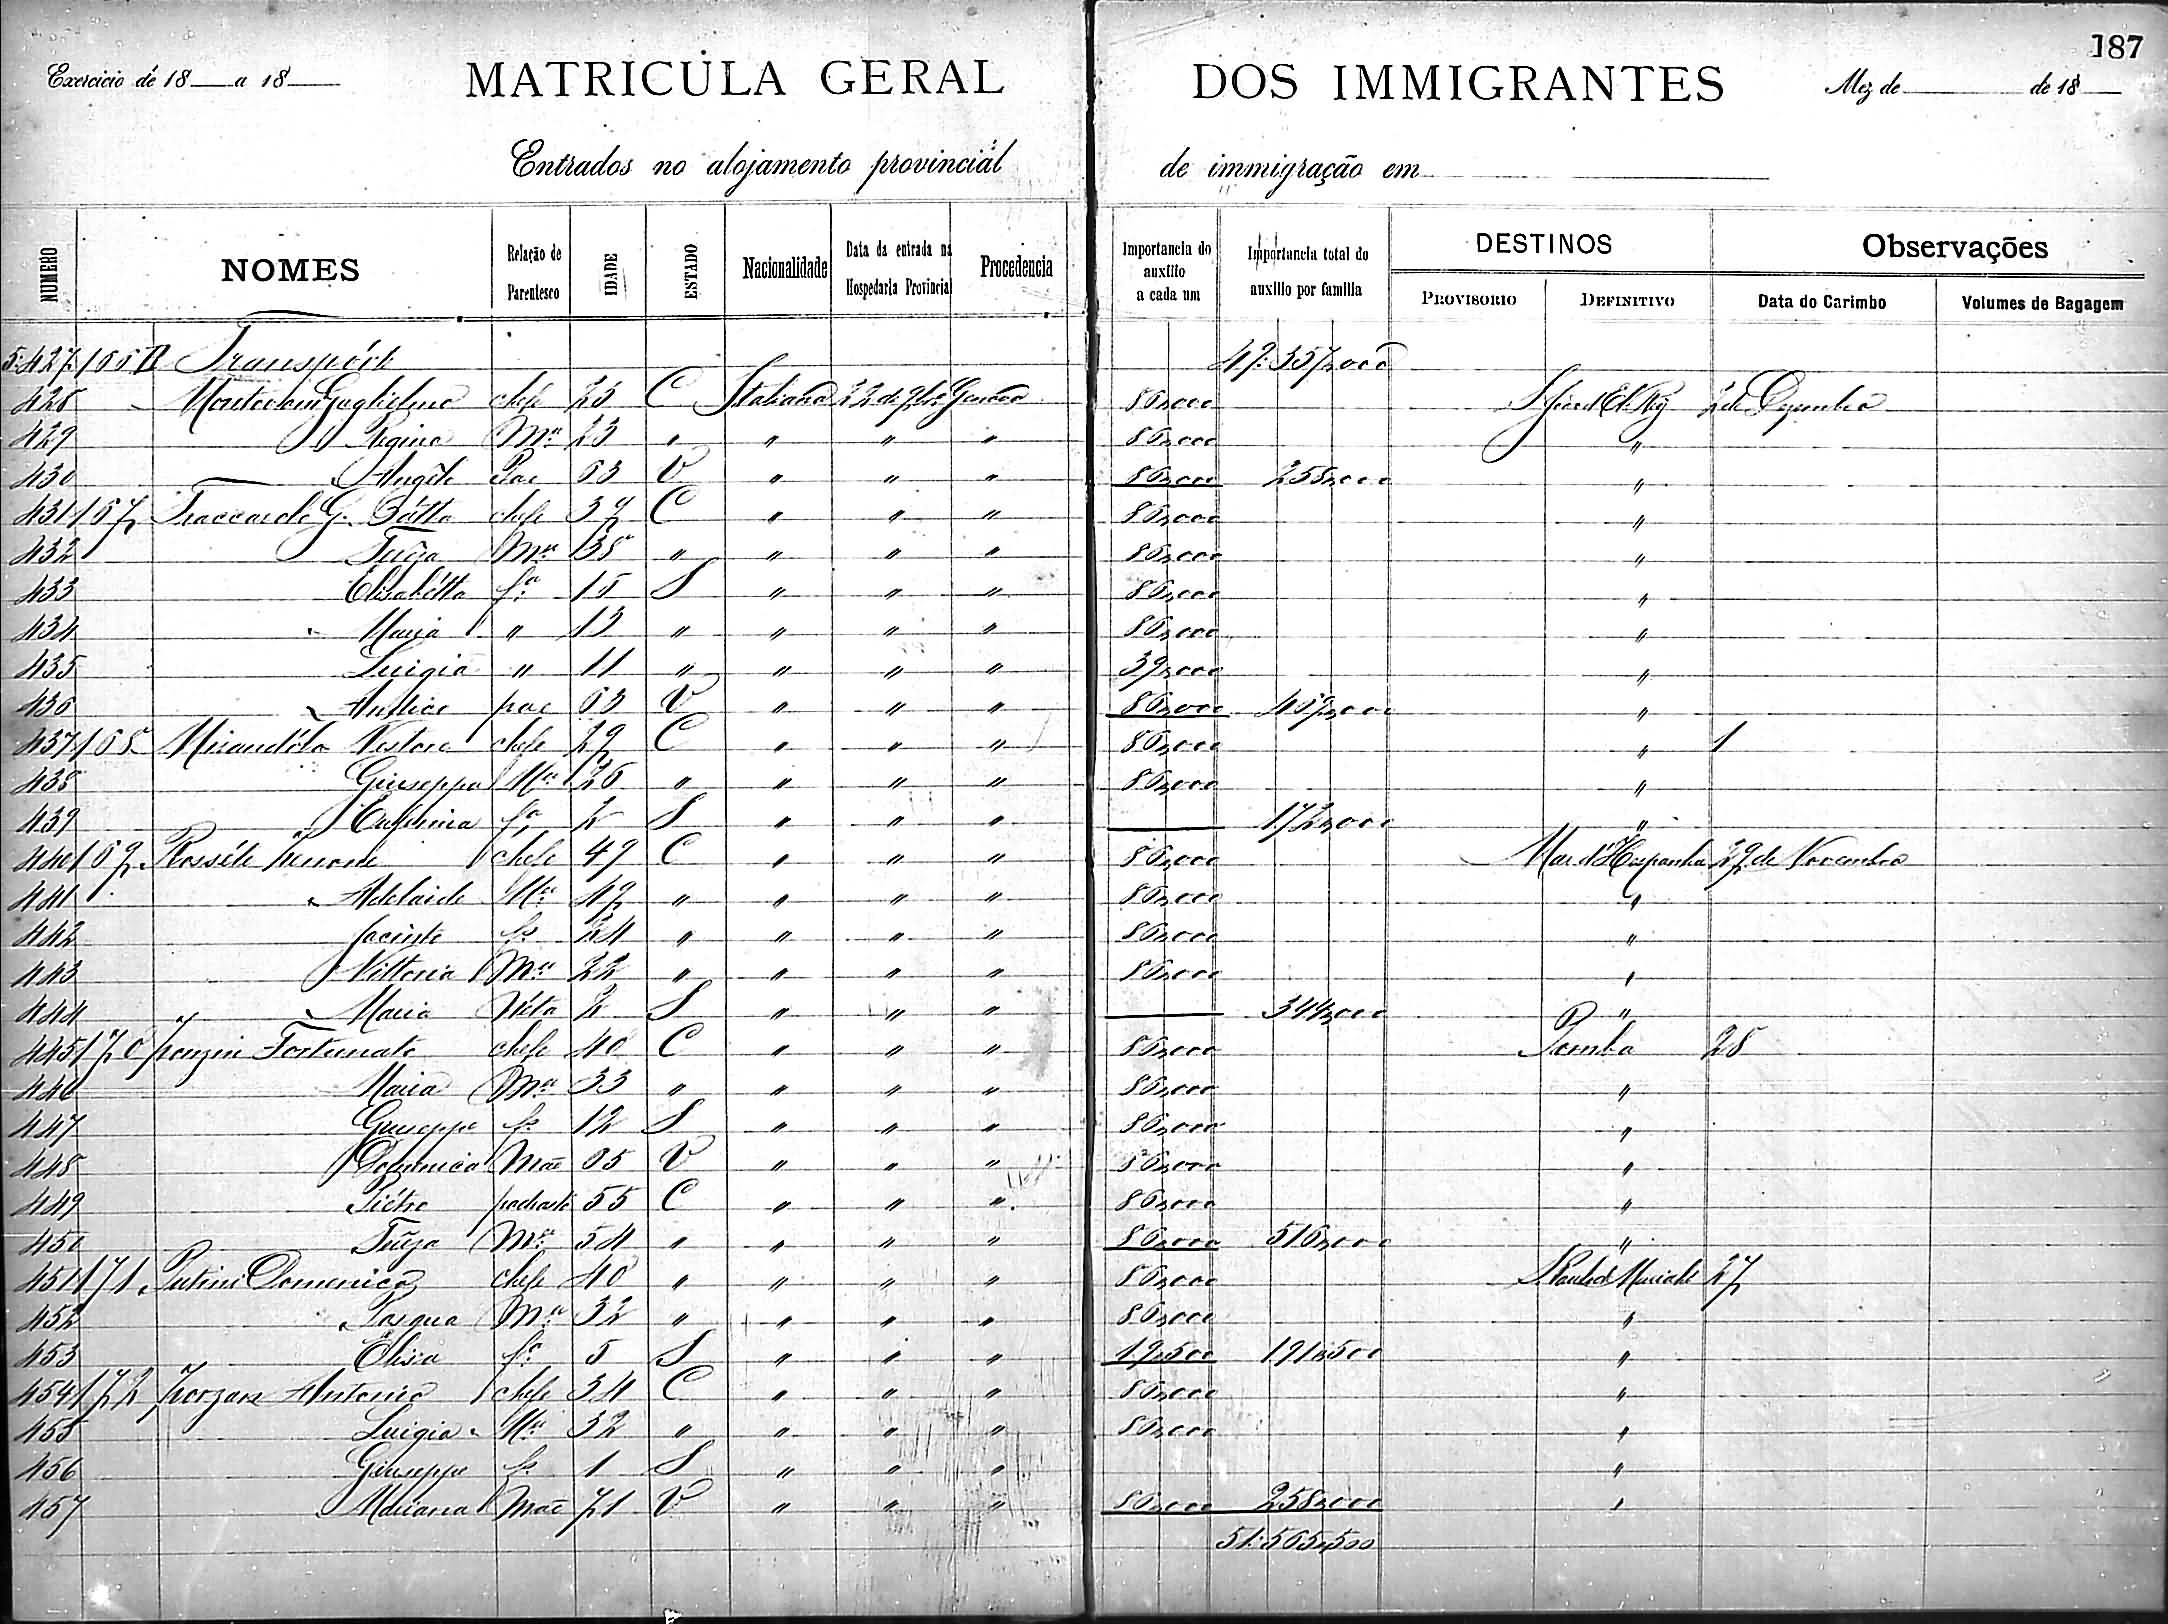 187
Exercicio de 18 a 18 MATRICULA GERAL DOS IMMIGRANTES Mez de de 18
Entrados no alojamento provincial de immigração em
NUMERO NOMES Relação de Parentesco IDADE ESTADO Nacionalidade Data da entrada na Hospedaria Provincial Procedencia Importancia do auxilio a cada um Importancia total do auxilio por familia DESTINOS PROVISORIO DEFINITIVO Observações Data do Carimbo Volumes de Bagagem
5.427 Transporte 47:357,000
428 Guglielmo chefe 25 C Italiana 22 de 9bro Genova 86,000 2 de Dezembro
429 Regina Mer 23 " " " " 86,000 "
430 Angelo Pae 63 V " " " 86,000 258,000 "
431 167 G. Batta chefe 37 C " " " 86,000 "
432 Luiza Mer 38 " " " " 86,000 "
433 Elisabetta fa 15 S " " " 86,000 "
434 Maria " 13 " " " " 86,000 "
435 Luigia " 11 " " " " 39,000 "
436 pae 63 V " " " 86,000 "
437 168 Mirandola Nestore chefe 29 C " " " 86,000 " 1
438 Giuseppa Mer 26 " " " " 86,000 "
439 fa 2 S " " " 172,000 "
440 169 chefe 49 C " " " 86,000 Mar d'Hespanha 29 de Novembro
441 Adelaide Mer 49 " " " " 86,000 "
442 Jacinto fo 24 " " " " 86,000 "
443 Vittoria Mer 22 " " " " 86,000 "
444 Maria Neta 2 S " " " 344,000 "
445 170 Fortunato chefe 40 C " " " 86,000 Pomba 28
446 Maria Mer 33 " " " " 86,000 "
447 Giuseppe fo 12 S " " " 86,000 "
448 Domenica Mãe 65 V " " " 86,000 "
449 Pietro padrasto 55 C " " " 86,000 "
450 Luiza Mer 54 " " " " 86,000 516,000 "
451 171 Putini Domenico chefe 40 " " " " 86,000 S. Paulo d Muriahé 27
452 Pasqua Mer 32 " " " " 86,000 "
453 Elisa fa 5 S " " " 19,500 191,500 "
454 172 Antonio chefe 34 C " " " 86,000 "
455 Luigia Mer 32 " " " " 86,000 "
456 Giuseppe fo 1 S " " " "
457 Mariana Mãe 71 V " " " 86,000 258,000 "
51:565,500